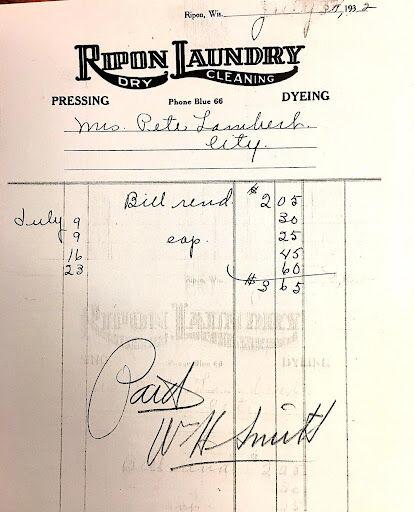 Ripon, Wis. July 30, 1932
RIPON LAUNDRY
DRY CLEANING
PRESSING Phone Blue 66 DYEING
Mrs. Pete Lambert
City.
Bill rend $ 2 05
July 9 30
9 cap. 25
16 45
23 60
$ 3 65
Paid
W H Smith